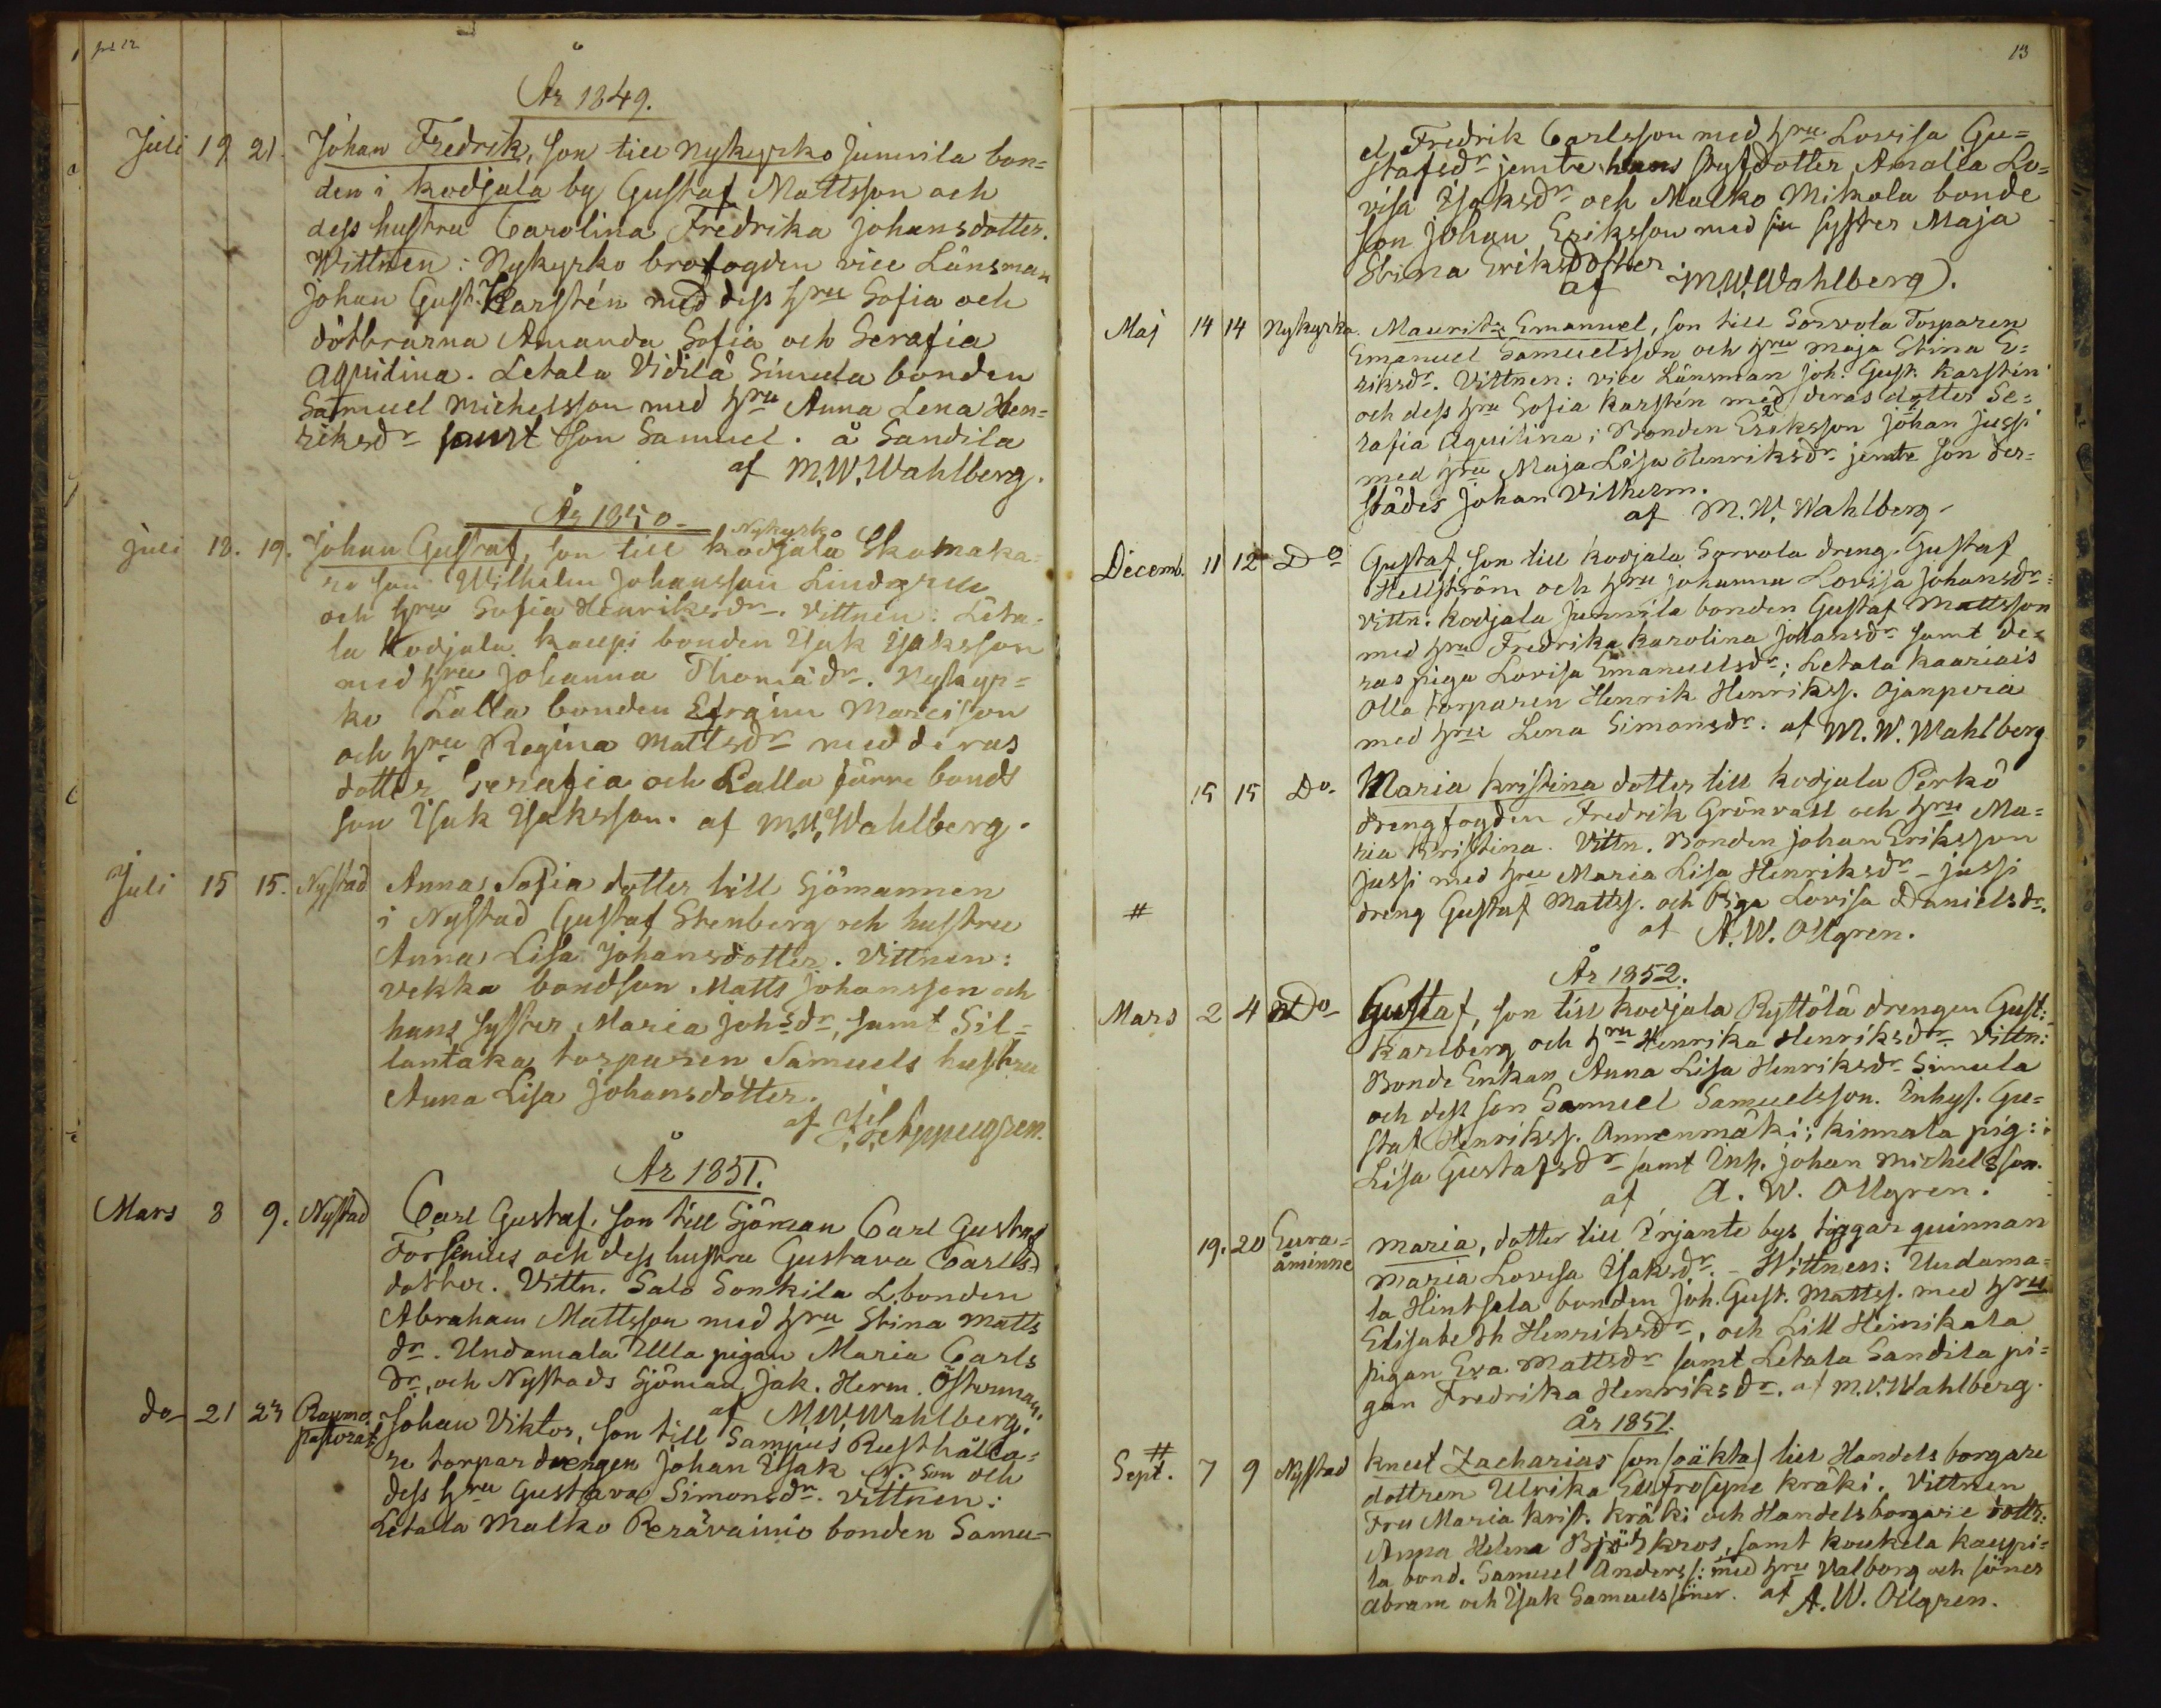 År 1849.
Juli 19 21. Johan Fredrik, son till Nykyrko Junnila bon=
den i Kodjala by Gustaf Mattsson och
dess hustru Carolina Fredrika Johansdotter.
Wittnen: Nykyrko brofogden vice Länsman
Johan Gust. Karstén med dess hru Sofia och
döttrarna Amanda Sofia och Serafia
Aquilina. Letala Vidilä Simula bonden
Samuel Michelsson med hru Anna Lena Hen=
riksdr samt Son Samuel. å Sandila
af M. W. Wahlberg.
År 1850.
Nykyrko
Juli 18. 19. Johan Gustaf, son till Kodjala Skomaka=
re son Wilhelm Johansson Lindgren
och hru Sofia Henriksdr. Vittnen: Leta=
la Kodjala Kaupi bonden Isak Isaksson
med hru Johanna Thomädr. Nykyr=
ko Lalla bonden Efraim Marcisson
och hru Regina Mattsdr med deras
dotter Serafia och Lalla Jårre bonds
son Isak Isaksson. af M. W. Wahlberg.
Juli 15 15. Nystad Anna Sofia dotter till Sjömannen
i Nystad Gustaf Stenberg och hustru
Anna Lisa Johansdotter. Vittnen:
Vekka bondson Matts Johansson och
hans syster Maria Johsdr, samt Sil=
lantaka torparen Samuels hustru
Anna Lisa Johansdotter.
af Appelgren.
År 1851.
Mars 8 9. Nystad Carl Gustaf, son till Sjöman Carl Gustaf
Forsenius och dess hustru Gustava Carls
dotter. Vittn. Salo Sonkila L.bonden
Abraham Mattsson med hru Stina Matts
dr. Undamala Ulla pigan Maria Carls
dr, och Nystads Sjöman Jak. Herm. Österman.
af M. W. Wahlberg.
do 21 23 Raumo pastorat Johan Viktor, son till Sampus Rusthålla=
re torpar drengen Johan Isak N. son och
dess hru Gustava Simonsdr. Vittnen:
Letala Malko Perävainio bonden Samu=
13
el Fredrik Carlsson med hru Lovisa Gu=
stafsdr jemte hans styfdotter Amalia Lo=
visa Isaksdr och Malko Mikola bonde
son Johan Eriksson med sin syster Maja
Stina Eriksdotter
af M. W. Wahlberg).
Maj 14 14 Nykyrka. Maurits Emanuel, son till Sorvola Torparen
Emanuel Samuelsson och hru Maja Stina E=
riksdr. Vittnen: vice Länsman Joh. Gust. Karstén
och dess hru Sofia Karstén med deras dotter Se=
rafia Aquilina; Bonden Eriksson Johan Jussi
med hru Maja Lisa Henriksdr jemte son der=
städes Johan Vilhelm.
af M. W. Wahlberg.
Decemb. 11 12 Do Gustaf, son till Kodjala Sorvola dreng. Gustaf
Hellström och hru Johanna Lovisa Johansdr:
Vittn: Kodjala Junnila bonden Gustaf Mattsson
med hru Fredrika Karolina Johansdr samt de=
ras piga Lovisa Emanuelsdr; Letala Kaariais
Olla torparen Henrik Henrikss. Ojanperä
med hru Lena Simonsdr. af M. W. Wahlberg
15 15 Do Maria Kristina dotter till Kodjala Perko
drengfogden Fredrik Grönvall och hru Ma=
ria Kristina. Vittn. Bonden Johan Eriksson
Jussi med hru Maria Lisa Henriksdr – Jussi
# dreng Gustaf Mattss. och Piga Lovisa Danielsdr.
af A. W. Ollgren.
År 1852.
Mars 2 4 Do Gustaf, son till Kodjala Ryttölä drengen Gust:
Karlberg och hru Henrika Henriksdr Vittn:
Bonde Enkan Anna Lisa Henriksdr Simula
och dess son Samuel Samuelsson. Inhys. Gu=
staf Henrikss. Annenmäki; Kinnala pig:
Lisa Gustafsdr samt Inh. Johan Michelsson.
af A. W. Ollgren.
19. 20 Eura=åminne Maria, dotter till Erjante bys tiggar quinnan
Maria Lovisa Isaksdr. – Wittnen: Undama=
la Hintsala bonden Joh. Gust. Mattss. med hru
Elisabeth Henriksdr, och Lill Heinikala
pigan Eva Mattsdr samt Letala Sandila pi=
gan Fredrika Henriksdr. af M. W. Wahlberg.
år 1851.
#
Sept. 7 9 Nystad Knut Zacharias son (oäkta) till Handels borgare
dottren Ulrika Eufrosyne Kräki. Vittnen
Fru Maria Krist. Kräki och Handelsborgare dottr:
Anna Helena Björkros, samt Koukela Kaupi=
la bond. Samuel Anderss: med hru Valborg och söner
Abram och Isak Samuelssöner. af A. W. Ollgren.